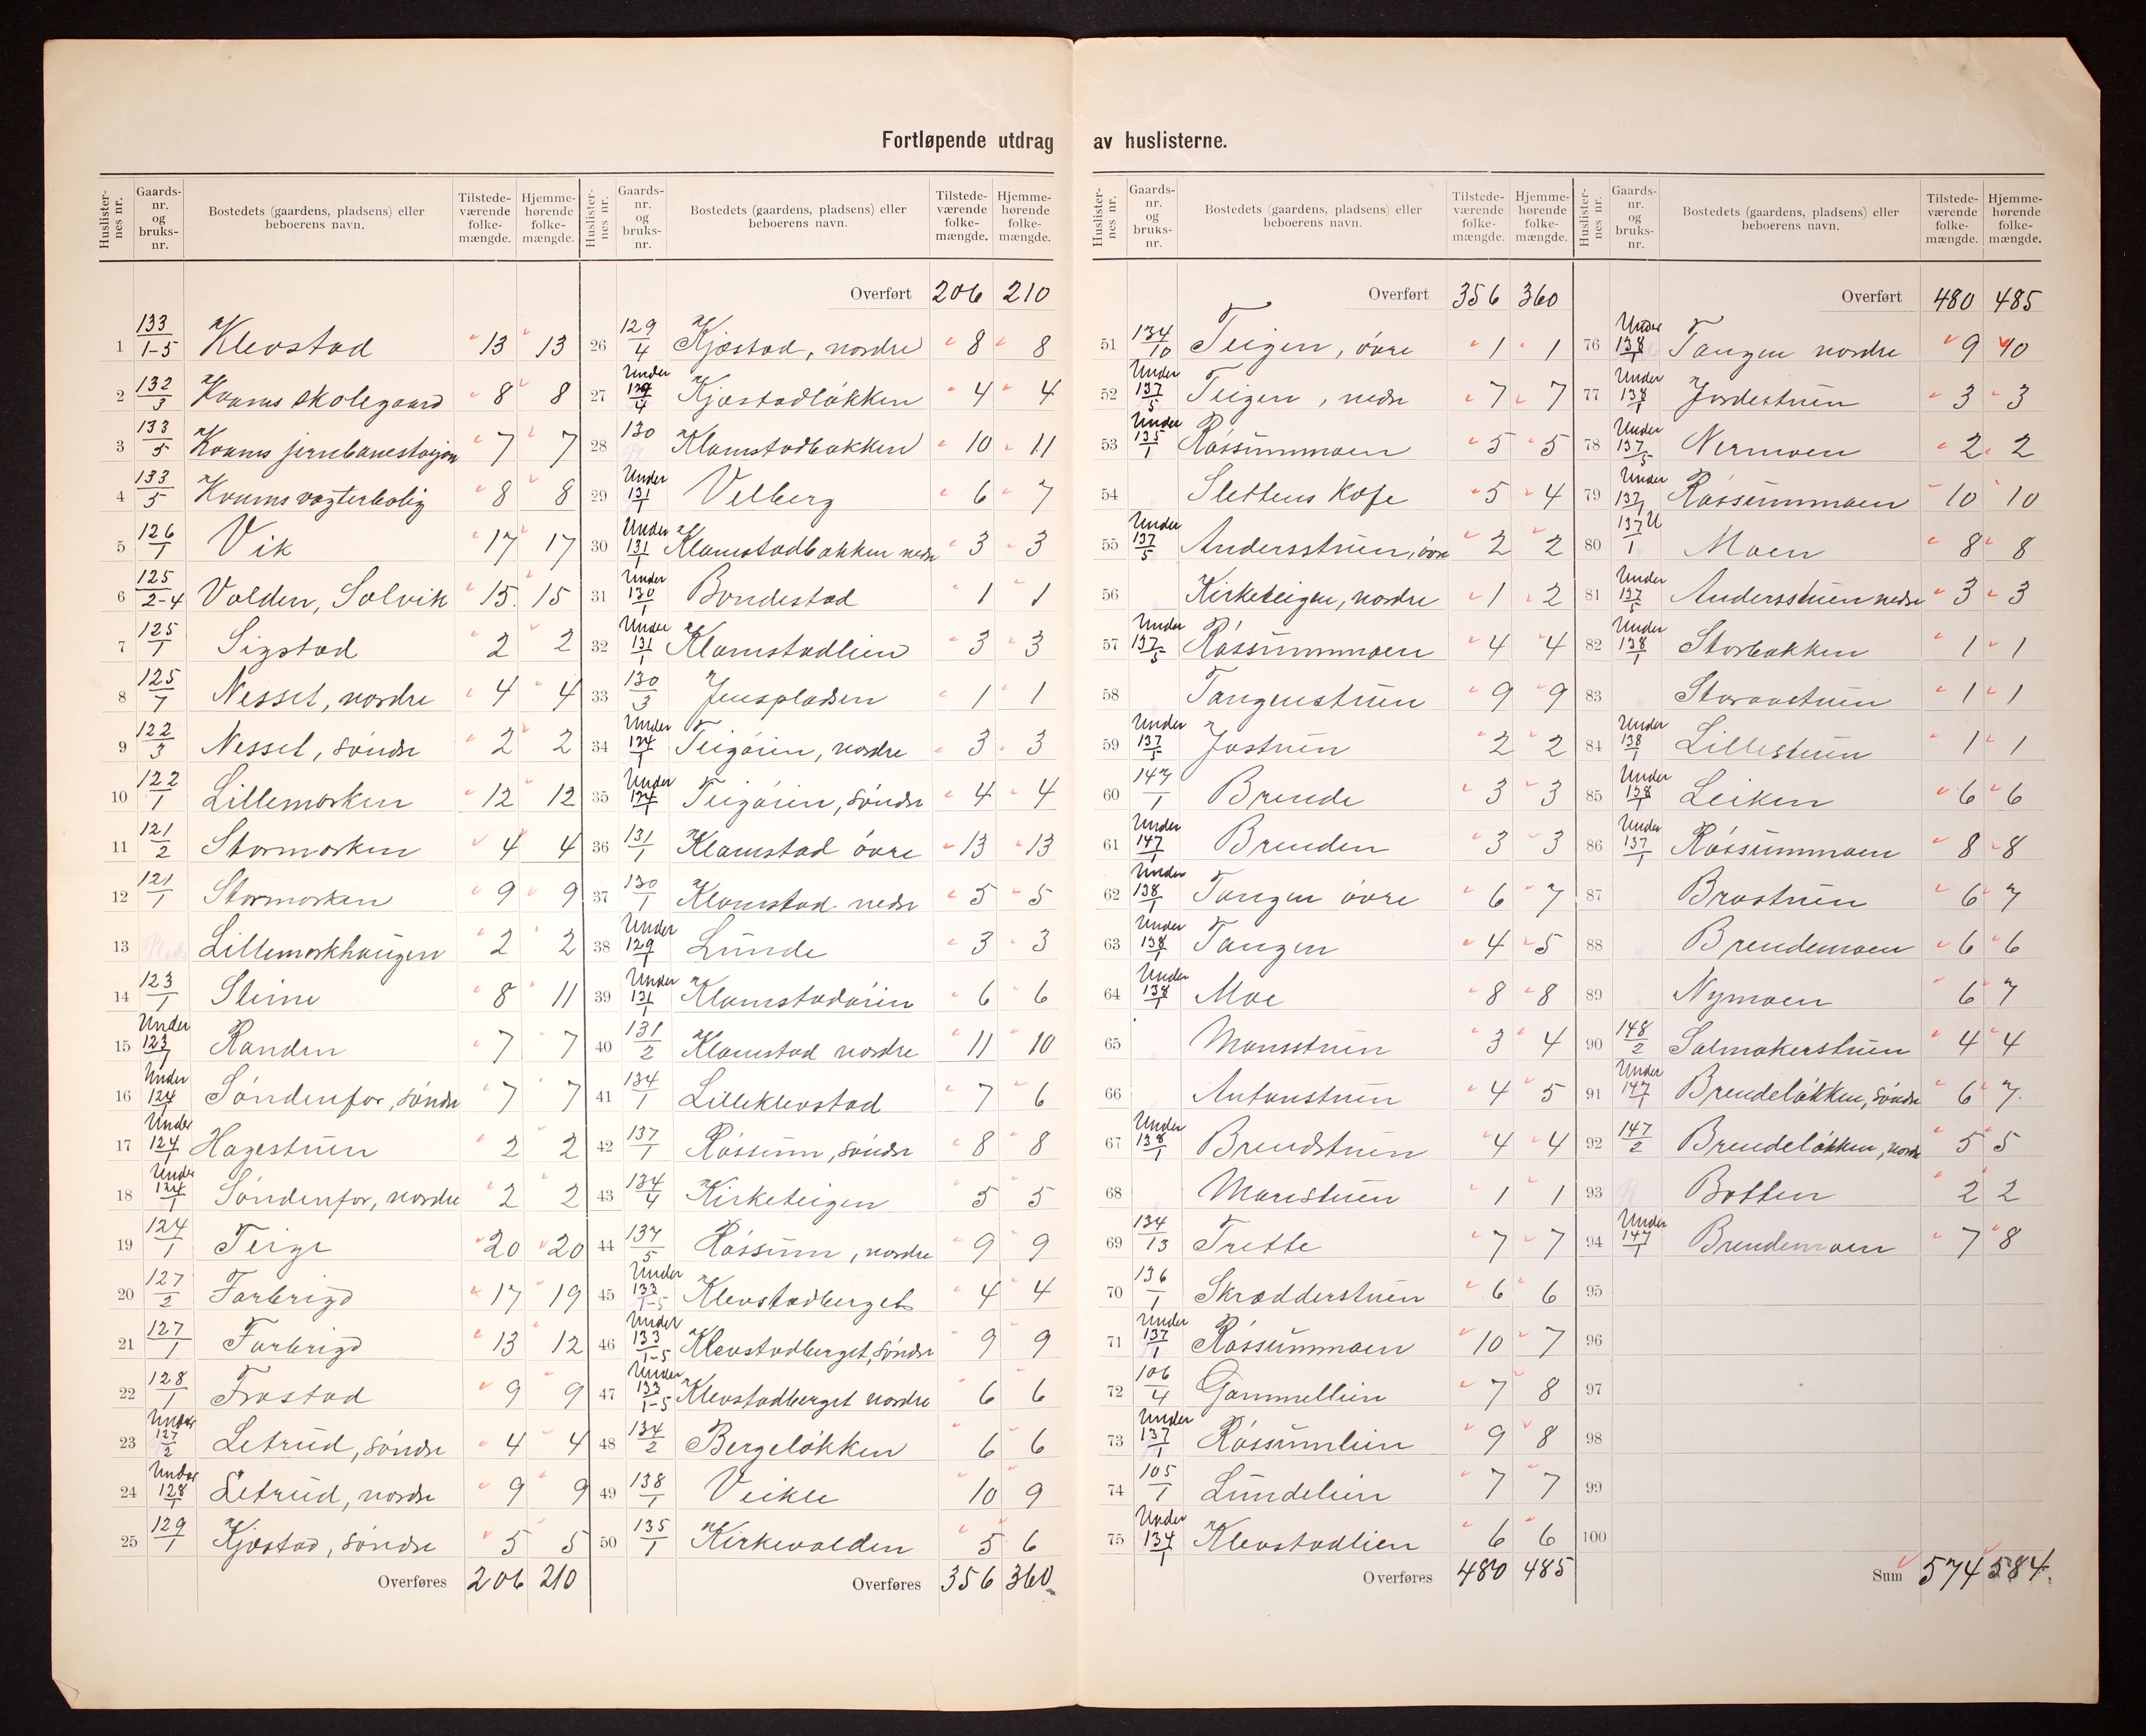 Fortløpende utdrag av huslisterne.
Huslisternes nr. Gaards-nr. og bruks-nr. Bostedets (gaardens, pladsens) eller beboerens navn. Tilstedeværende folkemængde. Hjemmehørende folkemængde.
1 133/1-5 Klevstad 13 13
2 132/3 Kvams skolegaard 8 8
3 133/5 Kvams jernbanestasjon 7 7
4 133/5 Kvams vogterbolig 8 8
5 126/1 Vik 17 17
6 125/2-4 Volden, Solvik 15 15
7 125/1 Sigstad 2 2
8 125/7 Nesset, nordre 4 4
9 122/3 Nesset, söndre 2 2
10 122/1 Lillemorken 12 12
11 121/2 Stormorken 4 4
12 121/1 Stormorken 9 9
13 Plads Lillemorkhaugen 2 2
14 123/1 Steine 8 11
15 Under 123/1 Randen 7 7
16 Under 124/1 Söndenfor, söndre 7 7
17 Under 124/1 Hagestuen 2 2
18 Under 124/1 Söndenfor, nordre 2 2
19 124/1 Teige 20 20
20 127/2 Forbrigd 17 19
21 127/1 Forbrigd 13 12
22 128/1 Frostad 9 9
23 Under 127/2 Letrud, söndre 4 4
24 Under 128/1 Letrud, nordre 9 9
25 129/1 Kjæstad, söndre 5 5
Overføres 206 210
Overført 206 210
26 129/4 Kjæstad, nordre 8 8
27 Under 129/4 Kjæstadlökken 4 4
28 130 Klomstadbakken 10 11
29 Under 131/1 Velberg 6 7
30 Under 131/1 Klomstadbakken nedre 3 3
31 Under 130/1 Bondestad 1 1
32 Under 131/1 Klomstadlien 3 3
33 130/3 Jenspladsen 1 1
34 Under 124/1 Teigöien, nordre 3 3
35 Under 124/1 Teigöien, söndre 4 4
36 131/1 Klomstad övre 13 13
37 130/1 Klomstad nedre 5 5
38 Under 129/1 Lunde 3 3
39 Under 131/1 Klomstadöien 6 6
40 131/2 Klomstad nordre 11 10
41 134/1 Lilleklevstad 7 6
42 137/1 Rössum, söndre 8 8
43 134/4 Kirketeigen 5 5
44 137/5 Rössum, nordre 9 9
45 Under 133/1-5 Klevstadberget 4 4
46 Under 133/1-5 Klevstadberget, söndre 9 9
47 Under 133/1-5 Klevstadberget nordre 6 6
48 134/2 Bergelökken 6 6
49 138/1 Veikle 10 9
50 135/1 Kirkevolden 5 6
Overføres 356 360
Overført 356 360
51 134/10 Teigen, övre 1 1
52 Under 137/5 Teigen, nedre 7 7
53 Under 135/1 Rössummoen 5 5
54 Slettens Kafe 5 4
55 Under 137/5 Andersstuen, övre 2 2
56 Kirketeigen, nordre 1 2
57 Under 137/5 Rössummoen 4 4
58 Tangenstuen 9 9
59 Under 137/5 Jostuen 2 2
60 147/1 Brende 3 3
61 Under 147/1 Brenden 3 3
62 Under 138/1 Tangen övre 6 7
63 Under 138/1 Tangen 4 5
64 Under 138/1 Moe 8 8
65 Monsstuen 3 4
66 Antonstuen 4 5
67 Under 138/1 Brendstuen 4 4
68 Morestuen 1 1
69 134/13 Trette 7 7
70 136/1 Skrædderstuen 6 6
71 Under 137/1 Rössummoen 10 7
72 106/4 Gammellien 7 8
73 Under 137/1 Rössumlien 9 8
74 105/1 Lundelien 7 7
75 Under 134/1 Klevstadlien 6 6
Overføres 480 485
Overført 480 485
76 Under 138/1 Tangen nordre 9 10
77 Under 138/1 Jordestuen 3 3
78 Under 137/5 Nermoen 2 2
79 Under 137/1 Rössummoen 10 10
80 137 U/1 Moen 8 8
81 Under 137/5 Andersstuen nedre 3 3
82 Under 138/1 Storbakken 1 1
83 Storaastuen 1 1
84 Under 138/1 Lillestuen 1 1
85 Under 138/1 Leiken 6 6
86 Under 137/1 Rössummoen 8 8
87 Brostuen 6 7
88 Brendemoen 6 6
89 Nymoen 6 7
90 148/2 Salmakerstuen 4 4
91 Under 147/1 Brendelökken, söndre 6 7
92 147/2 Brendelökken, nordre 5 5
93 Pl Botten 2 2
94 Under 147/1 Brendemoen 7 8
95
96
97
98
99
100
Sum 574 584.